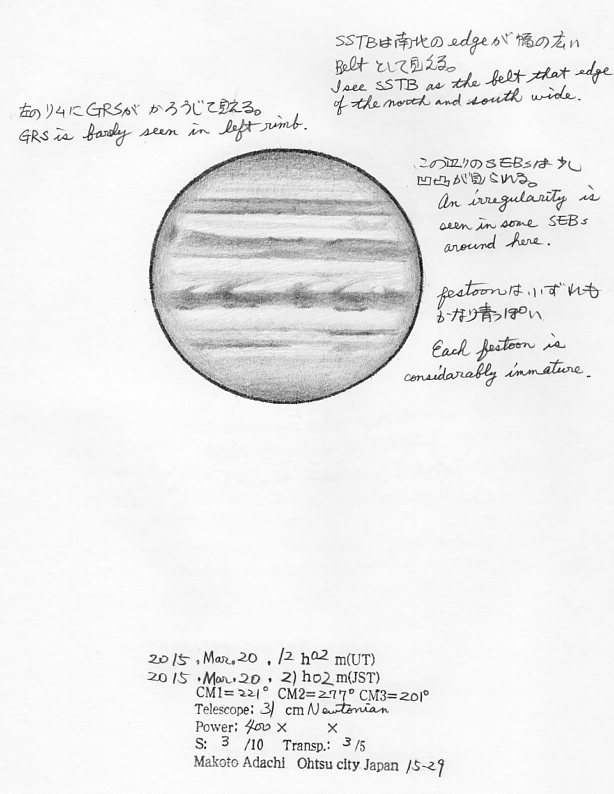 SSTBは南北のedgeが幅の広い
Beltとして見える。
I see SSTB as the belt that edge
of the north and south wide.
左のリムにGRSが かろうじて見える。
GRS is barely seen in left rimb.
この辺りのSEBsは少し
凹凸が見られる。
An irregularity is
seen in some SEBs
around here.
festoonはいずれも
かなり青っぽい
Each festoon is
considarably immature.
2015,Mar,20, 12 h02 m(UT)
2015,Mar,20, 21 h02 m(JST)
CM1=221° CM2=277° CM3=201°
Telescope: 31 cm Newtonian
Power: 400 × ×
S: 3 /10 Transp.: 3 /5
Makoto Adachi Ohtsu city Japan 15-29